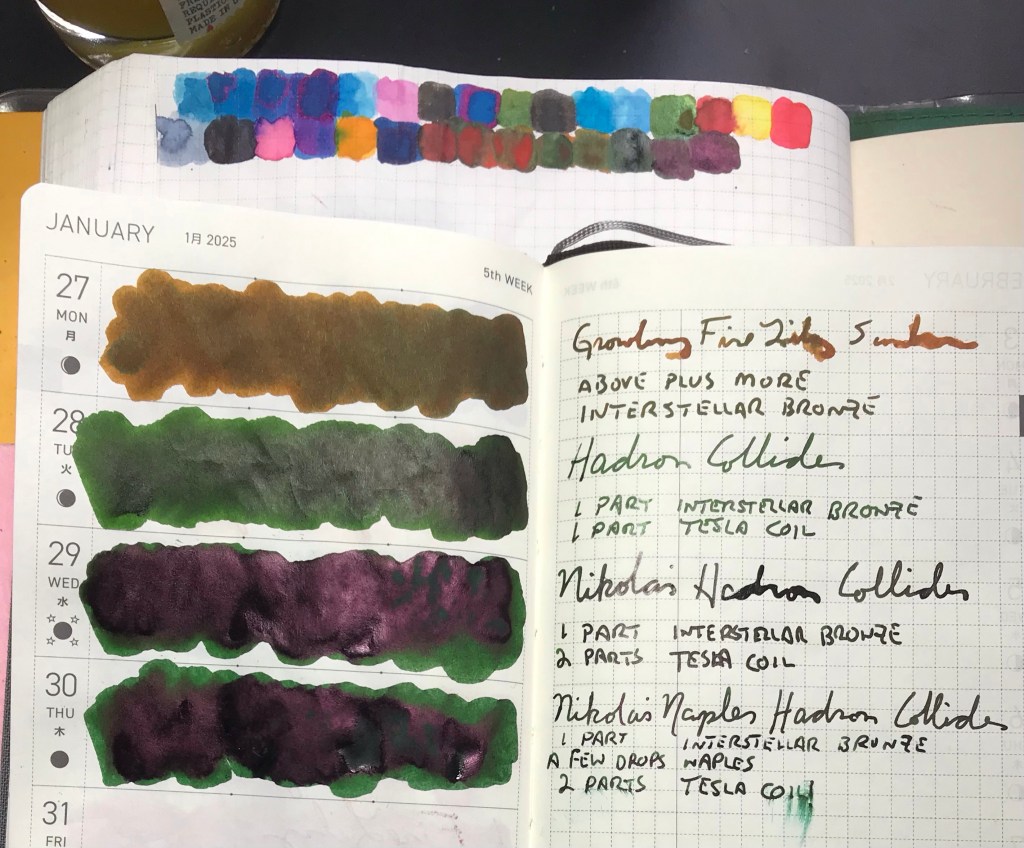 REQU
PLASTIC
MADE IN
JANUARY 1月 2025
5th WEEK
27
MON
月
28
TU
火
29
WED
水
30
THU
木
31
FRI
Growling Fire Lily
ABOVE PLUS MORE
INTERSTELLAR BRONZE
Hadron Collides
1 PART INTERSTELLAR BRONZE
1 PART TESLA COIL
Nikola's Hadron Collides
1 PART INTERSTELLAR BRONZE
2 PARTS TESLA COIL
Nikola's Naples Hadron Collides
1 PART INTERSTELLAR BRONZE
A FEW DROPS NAPLES
2 PARTS TESLA COIL